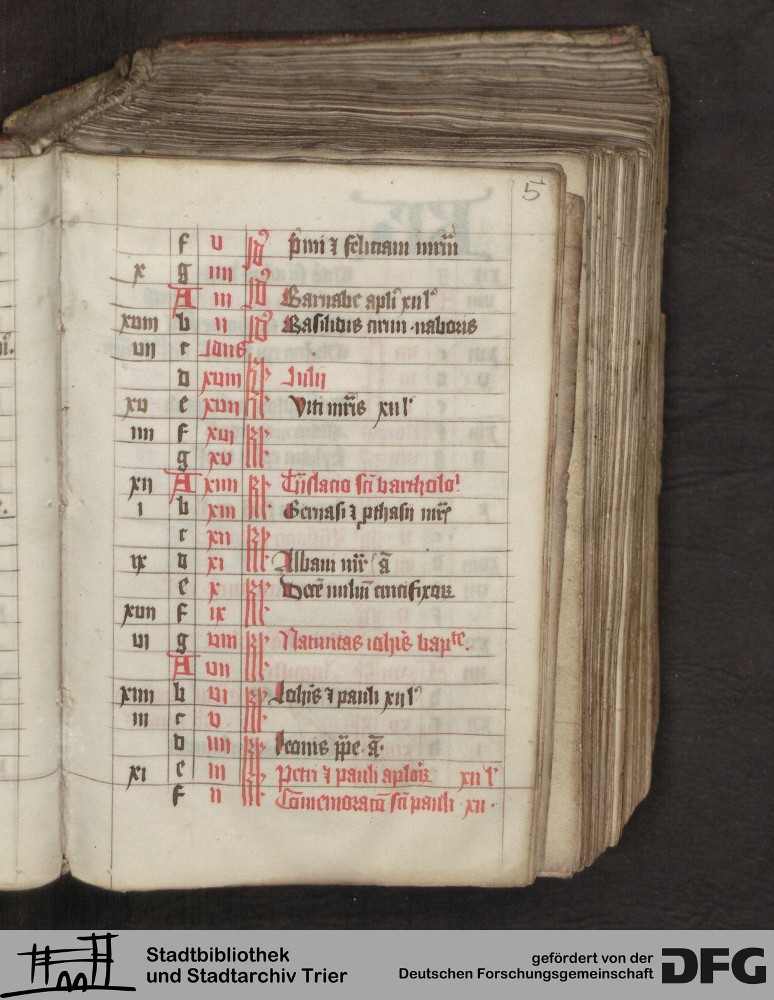 5
f v Id' p'mi ⁊ feliciani mr̄m
x g iiii
A iii Id' Barnabe apl'i xii l'
xviii b ii Id' Basilidis cirini naboris
vii c Idus
d xviii kl' Iulii
xv e xvii kl' Viti mr̄is xii l'
iiii f xvi kl'
g xv kl'
xii A xiiii kl' Tn̄slacio sc̄i bartholo'
i b xiii kl' Geruasi ⁊ pthasii mr̄
c xii kl'
ix d xi kl' Albani mr̄ a
e x kl' Decē miliū crucifixoꝝ
xvii f ix kl'
vi g viii kl' Natiuitas ioh'is bapte.
A vii kl'
xiiii b vi kl' Ioh'is ⁊ pauli xii l'
iii c v kl'
d iiii kl' leonis ppe a
xi e iii kl' Petri ⁊ pauli aploꝝ xii l'
f ii kl' Cōmemoracō sc̄i pauli xii.
Stadtbibliothek
und Stadtarchiv Trier
gefördert von der
Deutschen Forschungsgemeinschaft
DFG